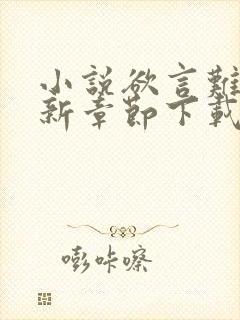 小説欲言難
新章節下載
嘭咔嚓